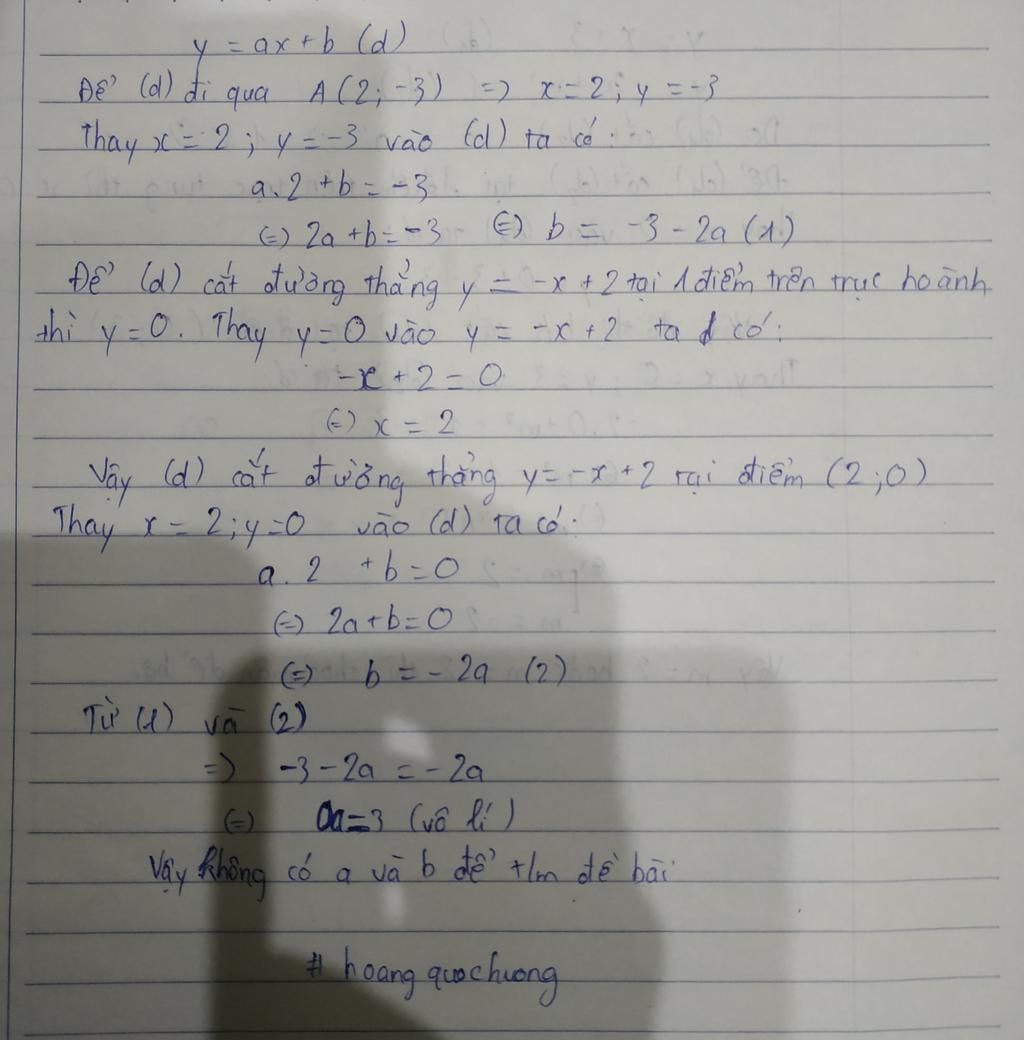 y = ax + b (d)
Để (d) đi qua A(2; -3) => x = 2; y = -3
Thay x = 2; y = -3 vào (d) ta có:
a.2 + b = -3
(=) 2a + b = -3 (=) b = -3 - 2a (1)
Để (d) cắt đường thẳng y = -x + 2 tại 1 điểm trên trục hoành
thì y = 0. Thay y = 0 vào y = -x + 2 ta có:
-x + 2 = 0
(=) x = 2
Vậy (d) cắt đường thẳng y = -x + 2 tại điểm (2; 0)
Thay x = 2; y = 0 vào (d) ta có:
a.2 + b = 0
(=) 2a + b = 0
(=) b = -2a (2)
Từ (1) và (2)
=> -3 - 2a = -2a
(=) 0a = 3 (vô lí)
Vậy không có a và b để t/m đề bài
# hoang quochuong